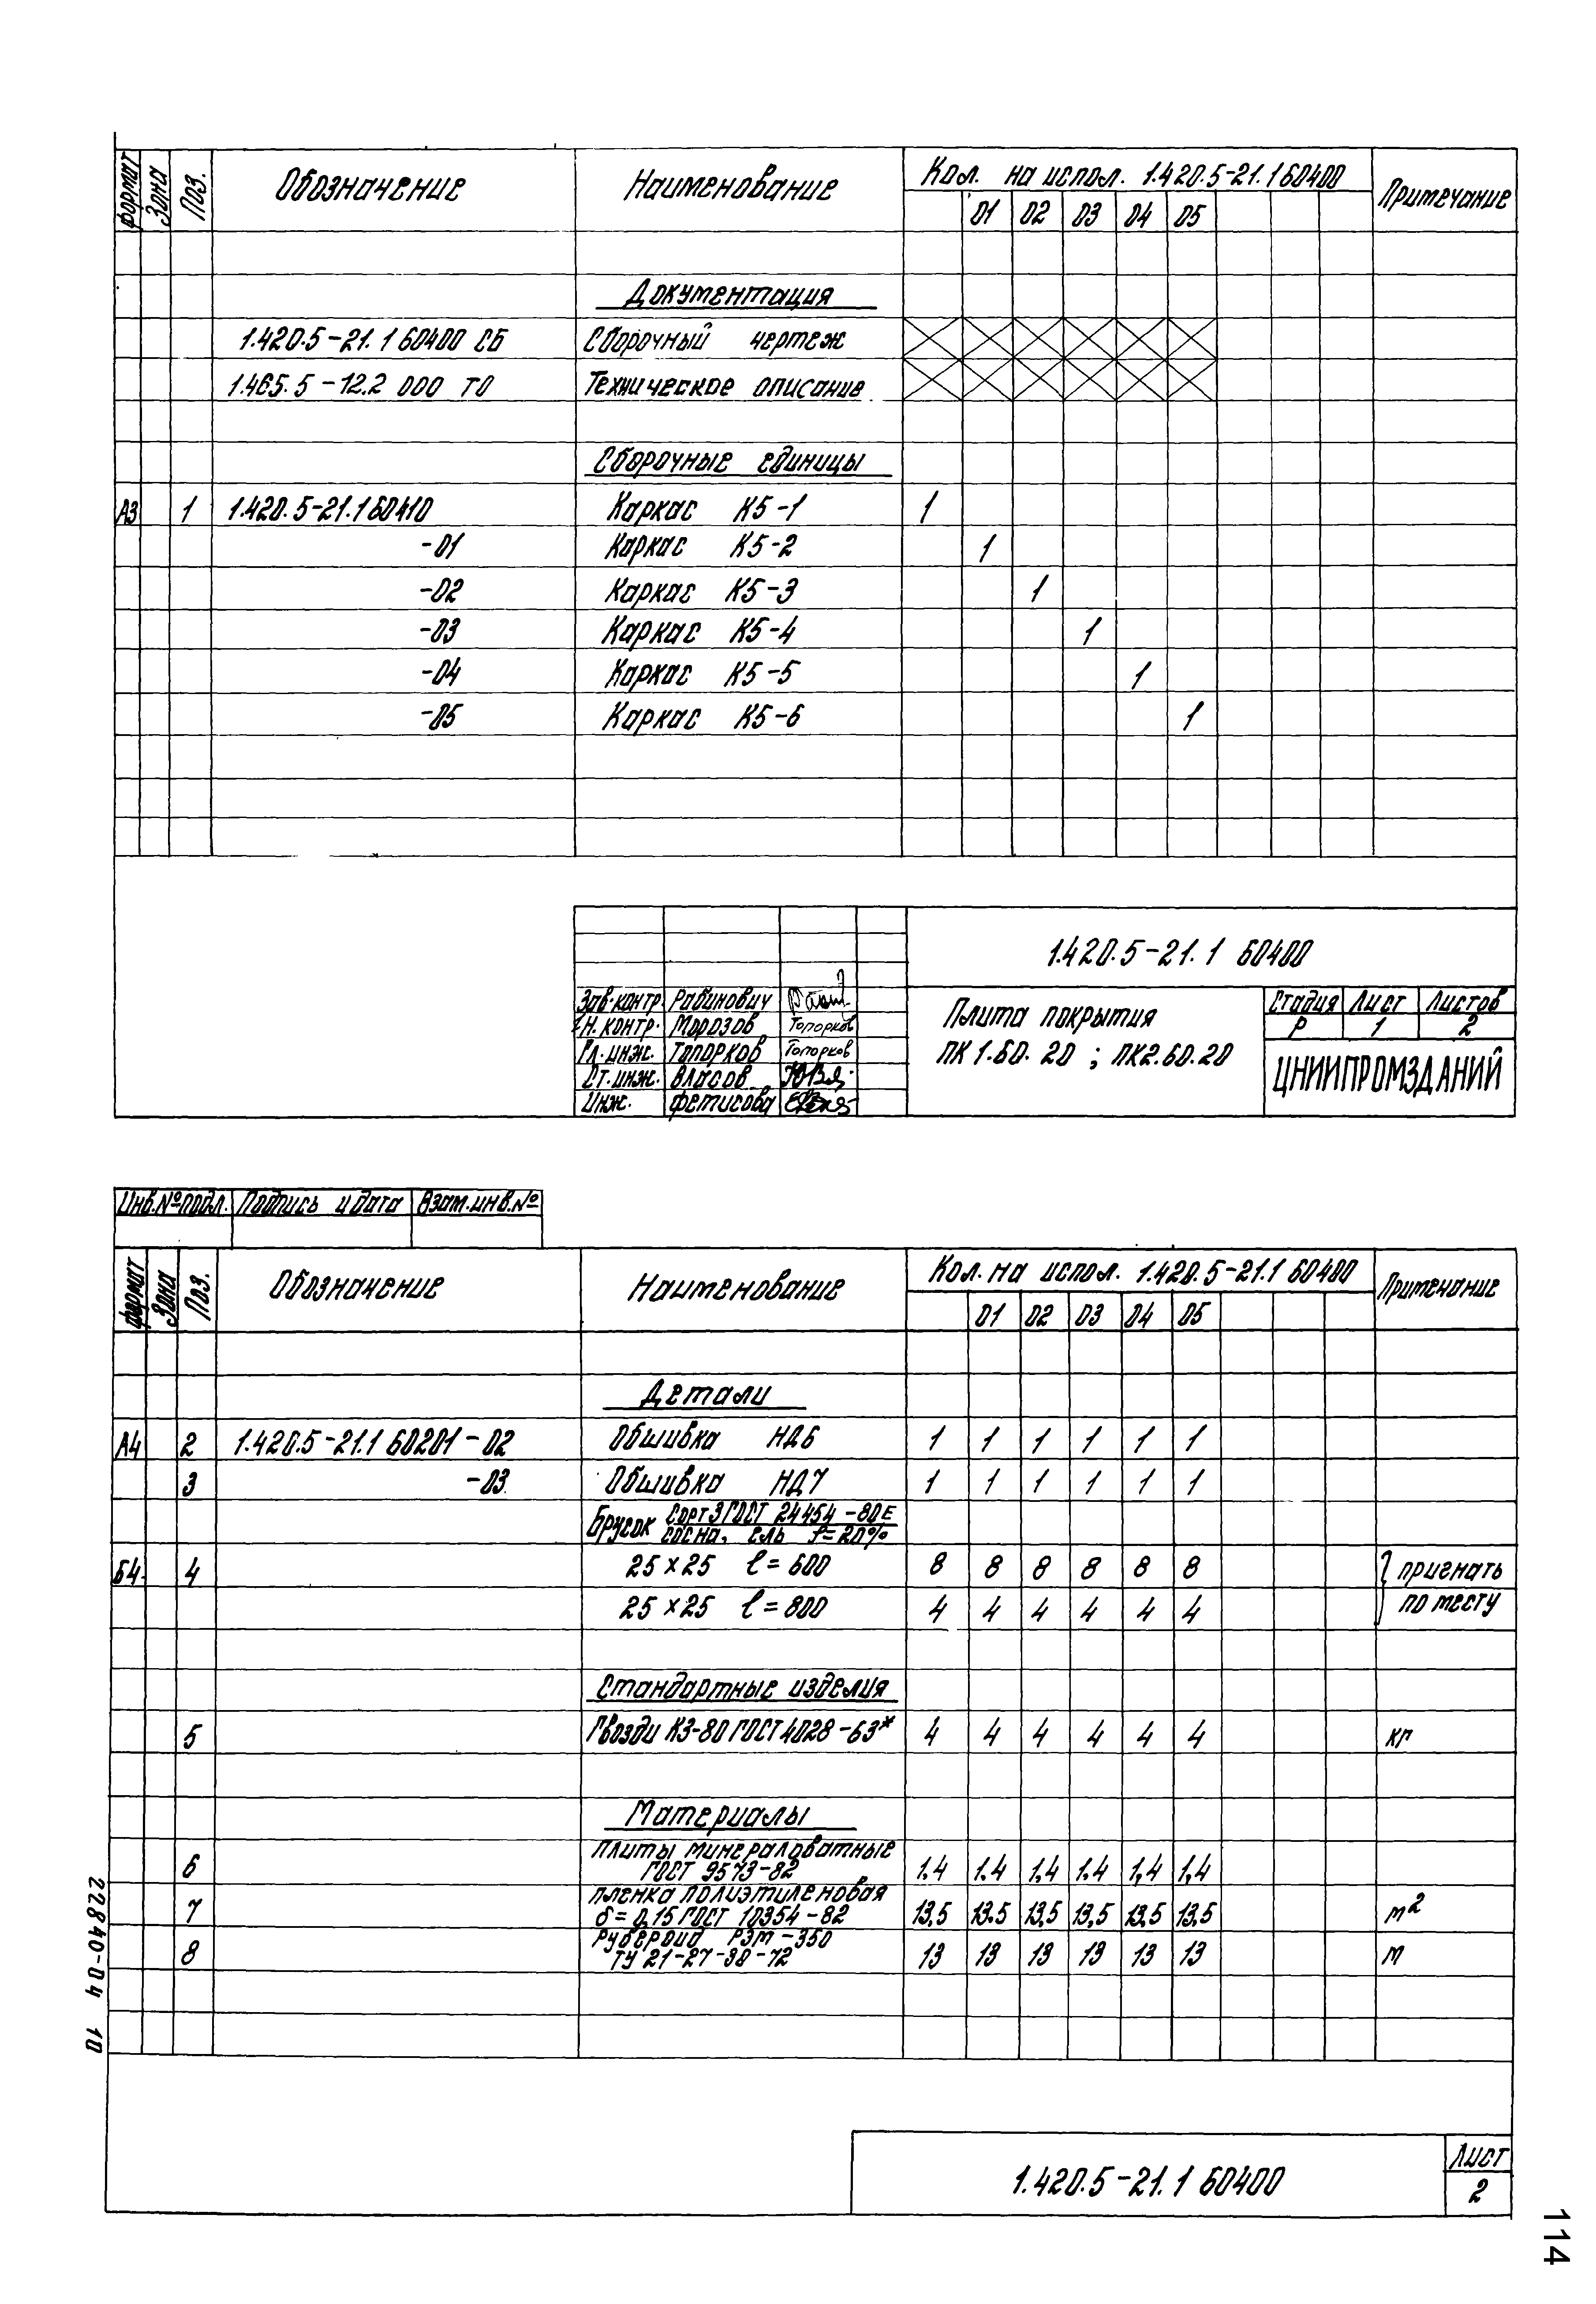 формат Зона Поз. Обозначение Наименование Кол. на испол. 1.420.5-21.1 60400 Примечание
01 02 03 04 05
Документация
1.420.5-21.1 60400 СБ Сборочный чертеж
1.465.5-12.2 000 ТО Техническое описание
Сборочные единицы
А3 1 1.420.5-21.1 60410 Каркас К5-1 1
-01 Каркас К5-2 1
-02 Каркас К5-3 1
-03 Каркас К5-4 1
-04 Каркас К5-5 1
-05 Каркас К5-6 1
1.420.5-21.1 60400
Зав.контр. Рабинович
Н.контр. Морозов Топорков
Гл.инж. Топорков Топорков
Ст.инж. Власов
Инж. Фетисова
Плита покрытия
ПК1.60.20 ; ПК2.60.20
Стадия Лист Листов
Р 1 2
ЦНИИПРОМЗДАНИЙ
Инв.№подл. Подпись и дата Взам.инв.№
формат Зона Поз. Обозначение Наименование Кол. на испол. 1.420.5-21.1 60400 Примечание
01 02 03 04 05
Детали
А4 2 1.420.5-21.1 60201-02 Обшивка НД6 1 1 1 1 1 1
3 -03 Обшивка НД7 1 1 1 1 1 1
Брусок Сорт3 ГОСТ 24454-80Е
сосна, ель f=20%
Б4 4 25×25 ℓ=600 8 8 8 8 8 8 пригнать
25×25 ℓ=800 4 4 4 4 4 4 по месту
Стандартные изделия
5 Гвозди К3-80 ГОСТ 4028-63* 4 4 4 4 4 4 кг
Материалы
6 Плиты минераловатные
ГОСТ 9573-82 1.4 1.4 1,4 1.4 1,4 1,4
7 пленка полиэтиленовая
δ=0,15 ГОСТ 10354-82 13,5 13.5 13,5 13,5 13,5 13,5 м²
8 Рубероид РЭМ-350
ТУ 21-27-38-72 13 13 13 13 13 13 м
1.420.5-21.1 60400
Лист
2
22840-04 10
114